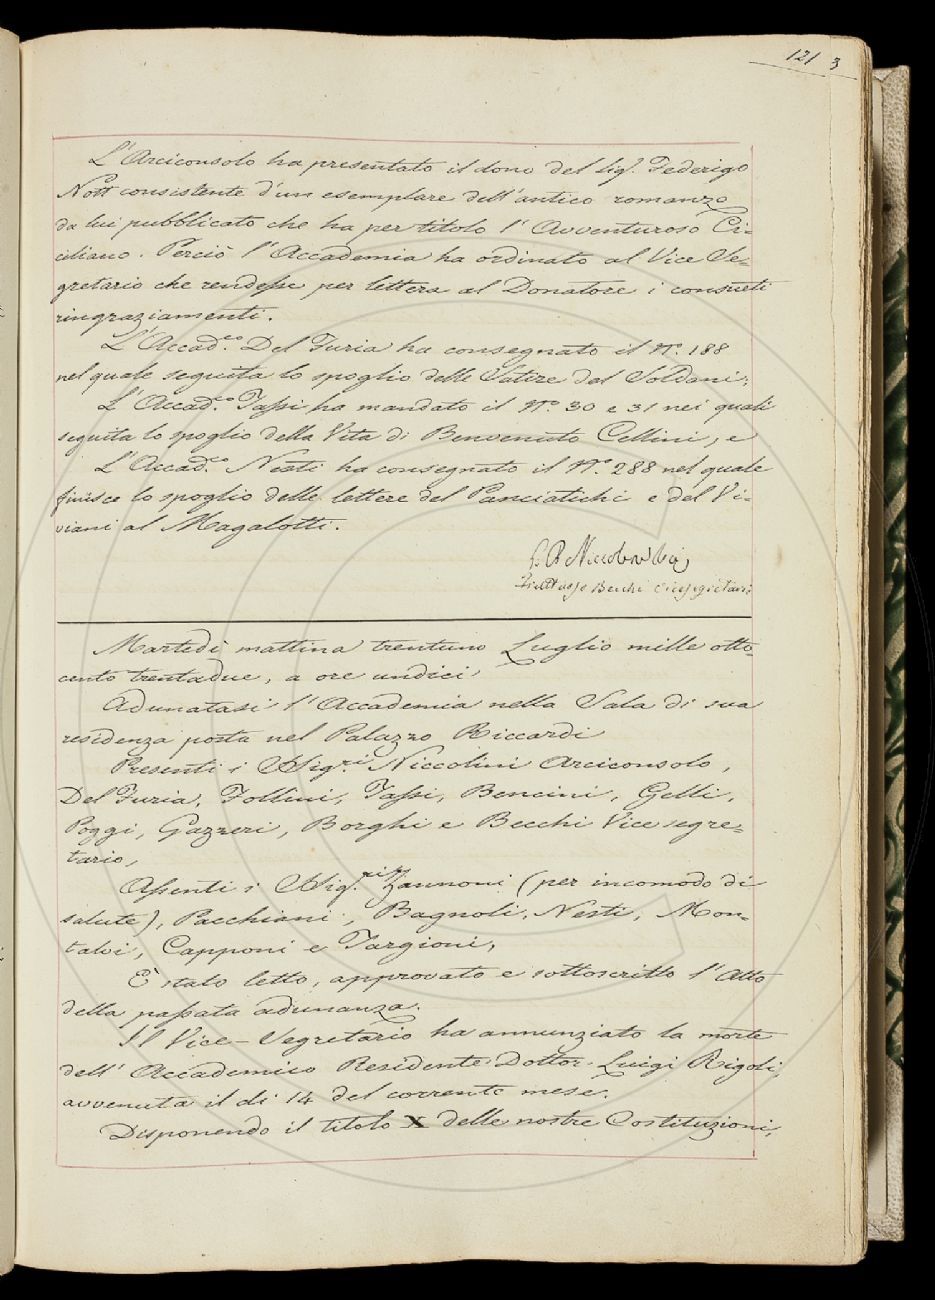 121 3
L'Arciconsolo ha presentato il dono del Sig. Federigo
Nott consistente d'un esemplare dell'antico romanzo
da lui pubblicato che ha per titolo l'Avventuroso Ci-
ciliano. Perciò l'Accademia ha ordinato al Vice Se=
gretario che rendesse per lettera al Donatore i consueti
ringraziamenti.
L'Accad.co Del Furia ha consegnato il N.o 188
nel quale seguita lo spoglio delle Satire del Soldani;
L'Accad.co Tassi ha mandato il N.o 30 e 31 nei quali
seguita lo spoglio della Vita di Benvenuto Cellini, e
L'Accad.co Nesti ha consegnato il N.o 288 nel quale
finisce lo spoglio delle lettere del Panciatichi e del Vi-
viani al Magalotti.
G. B. Niccolini
Fruttuoso Becchi Vicesegretario
Martedì mattina trentuno Luglio mille otto=
cento trentadue, a ore undici
Adunatasi l'Accademia nella Sala di sua
residenza posta nel Palazzo Riccardi
Presenti i SSig.ri Niccolini Arciconsolo,
Del Furia, Follini, Tassi, Bencini, Gelli,
Poggi, Gazzeri, Borghi e Becchi Vice segre=
tario,
Assenti i SSig.ri Zannoni (per incomodo di
salute), Pacchiani, Bagnoli, Nesti, Mon-
talvi, Capponi e Targioni,
È stato letto, approvato e sottoscritto l'Atto
della passata adunanza.
Il Vice-Segretario ha annunziato la morte
dell'Accademico Residente Dottor Luigi Rigoli,
avvenuta il dì 14 del corrente mese.
Disponendo il titolo X delle nostre Costituzioni,